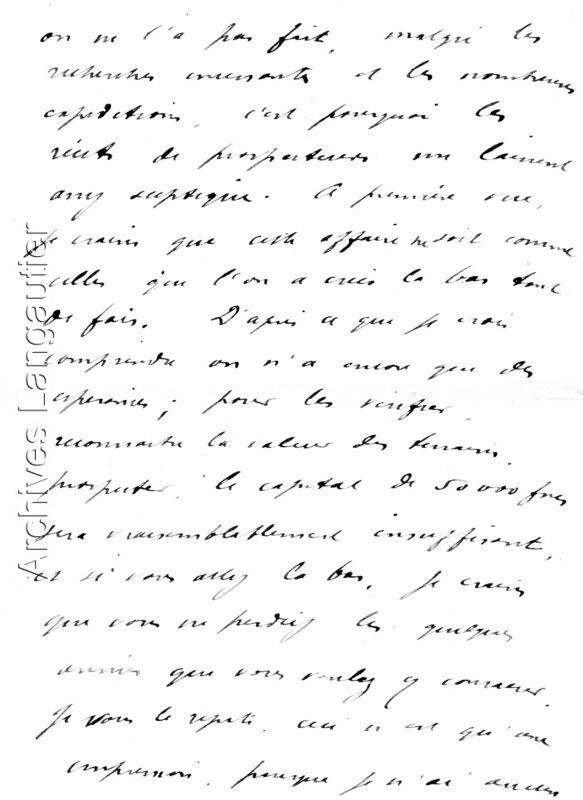 on ne l'a pas fait, malgré les
recherches incessantes et les nombreuses
expéditions, c'est pourquoi les
récits de prospecteurs me laissent
assez sceptique. A première vue,
Je crains que cette affaire ne soit comme
celles que l'on a créés là bas tant
de fois. D'après ce que je crois
comprendre on n'a encore que des
espérances; pour les vérifier,
reconnaitre la valeur des terrains,
prospecter, le capital de 50 000 frs
sera vraisemblablement insuffisant,
et si vous allez là bas, je crains
que vous ne perdiez les quelques
années que vous voulez y consacrer.
Je vous le répète, ceci n'est qu'une
impression, puisque je n'ai aucun
Archives Langautier